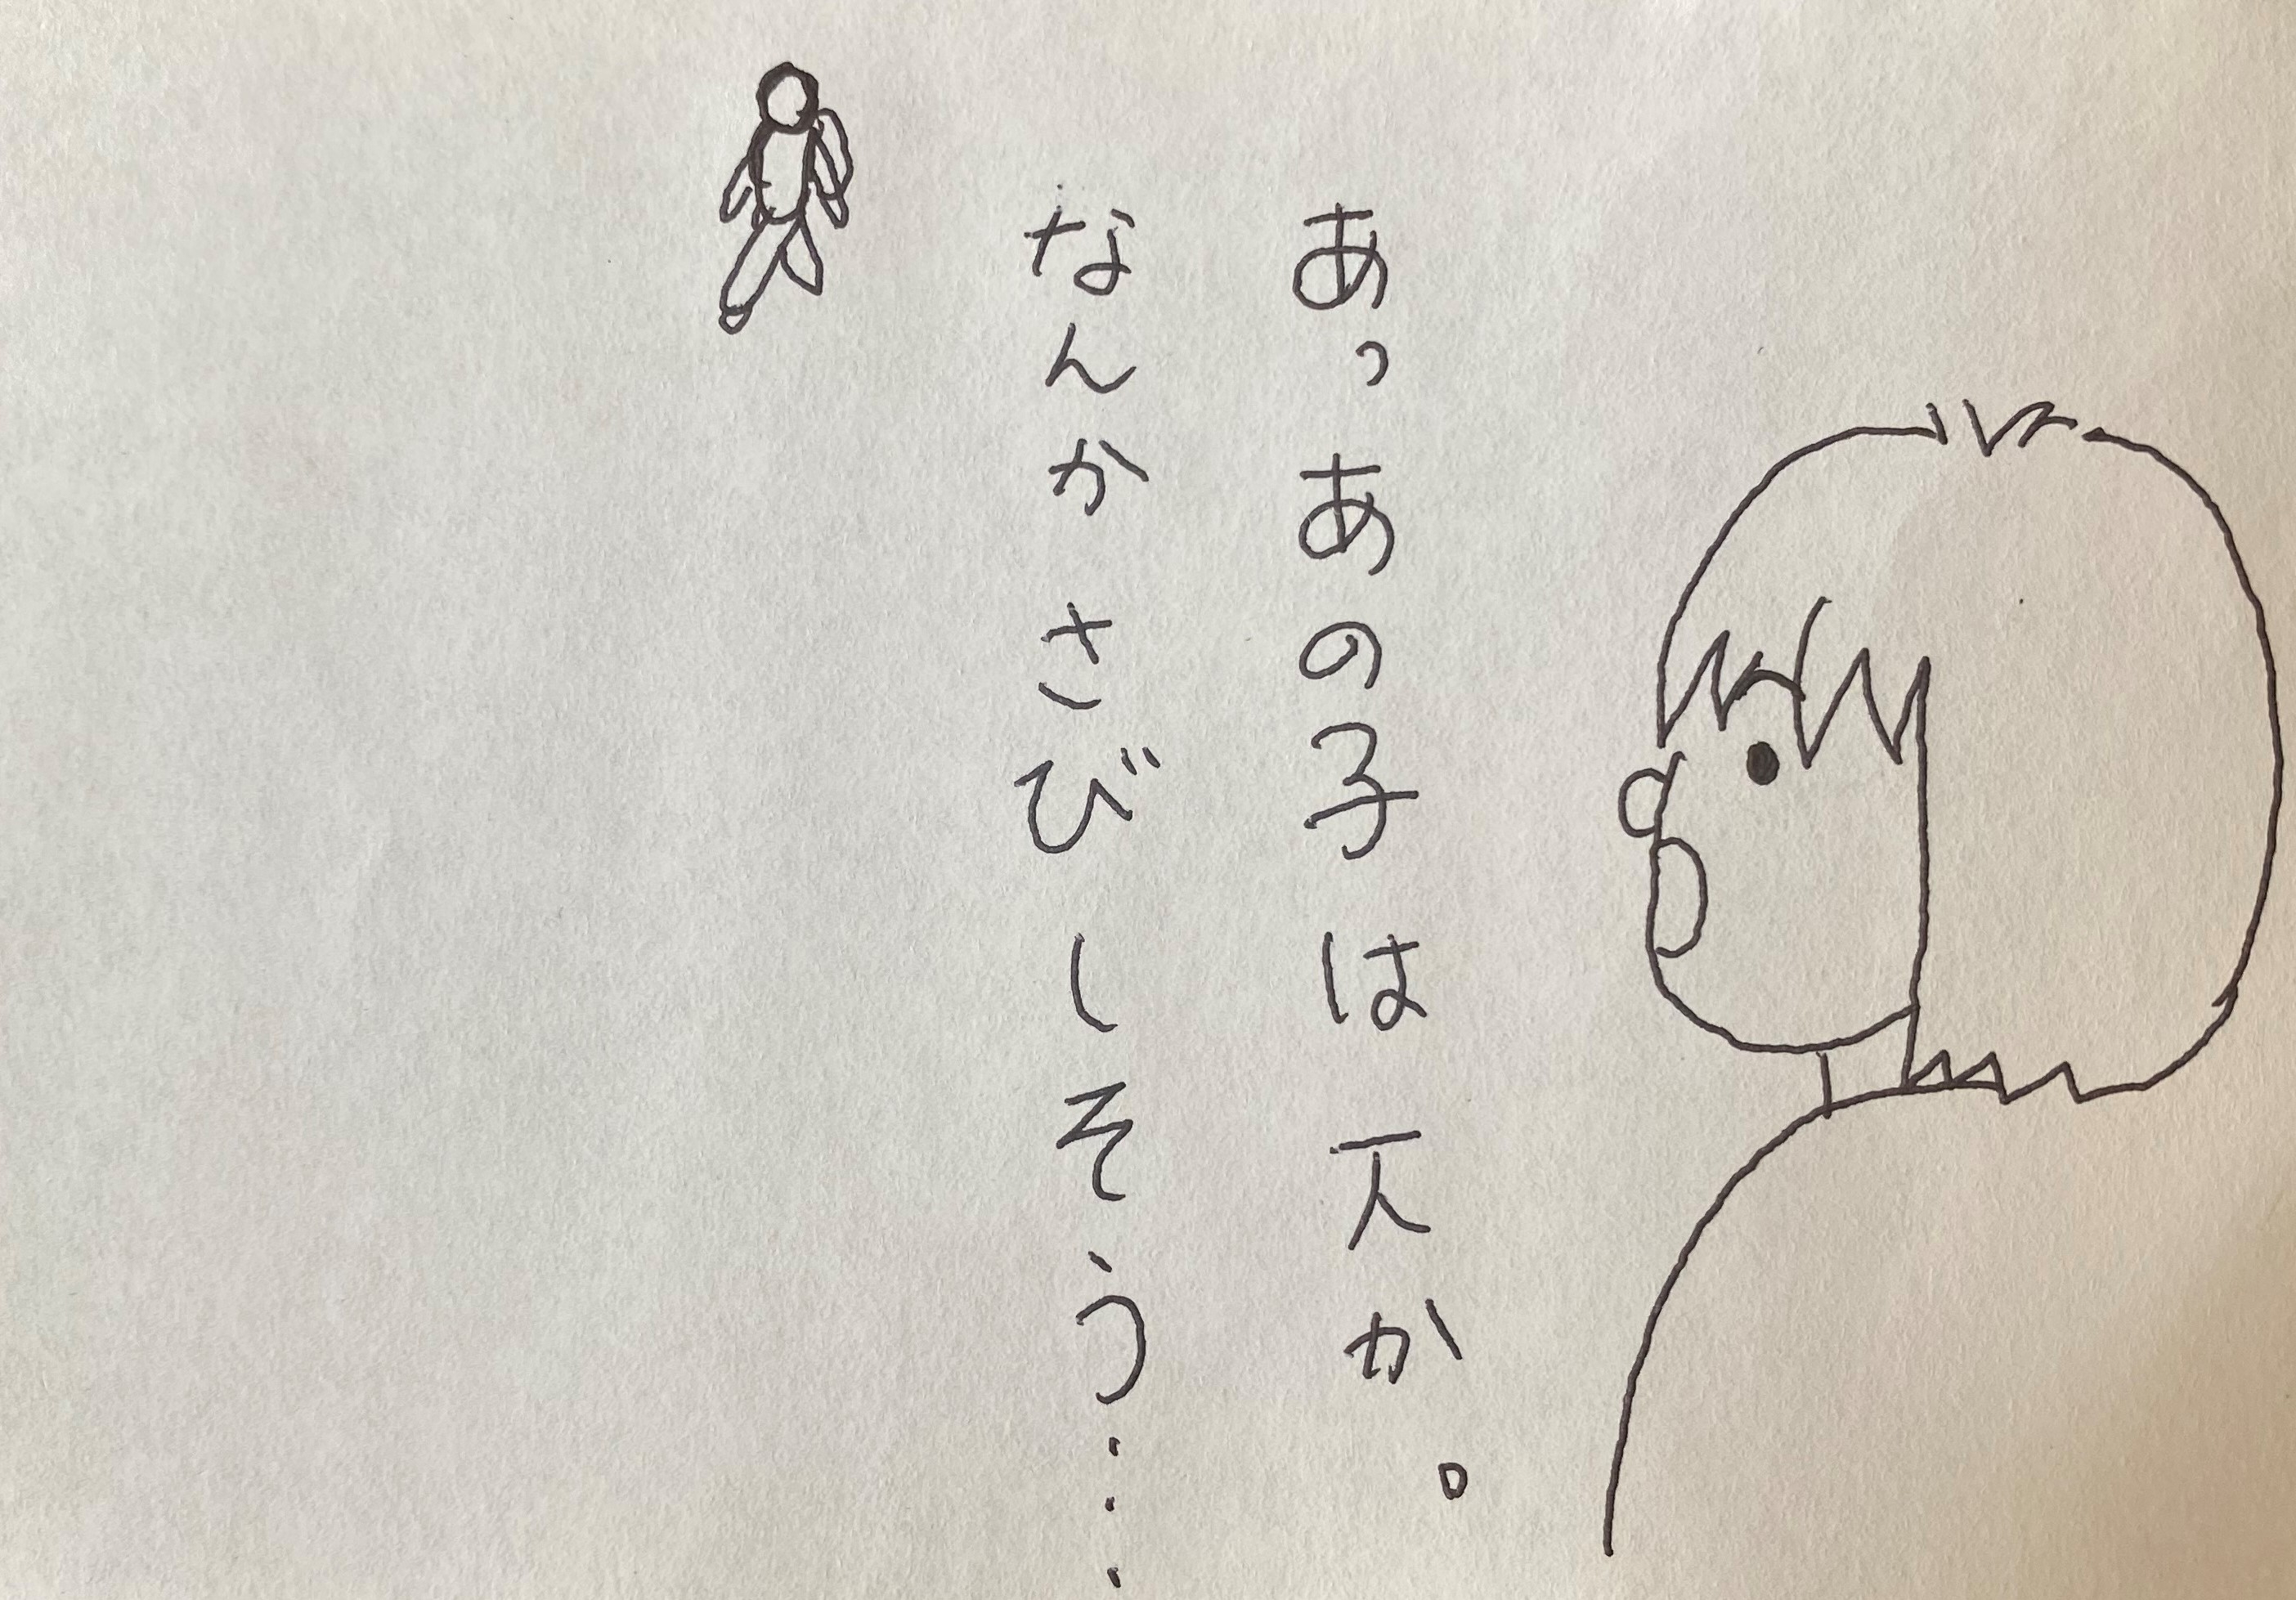 あっあの子は一人か。
なんかさびしそう…